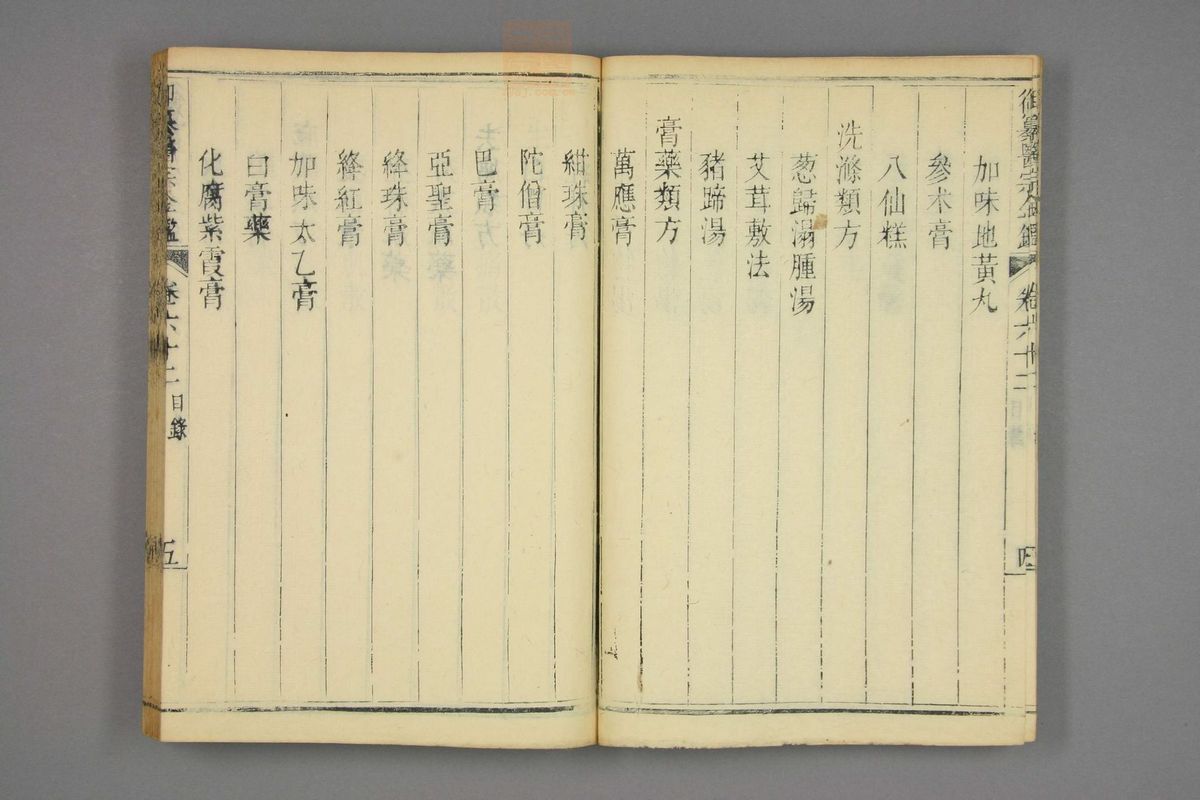 御纂醫宗金鑑 卷六十二 四
加味地黃丸
參朮膏
八仙糕
洗滌類方
葱歸溻腫湯
艾茸敷法
豬蹄湯
膏藥類方
萬應膏
紺珠膏
陀僧膏
巴膏
亞聖膏
絳珠膏
絳紅膏
加味太乙膏
白膏藥
化腐紫霞膏
御纂醫宗金鑑 卷六十二 目錄 五